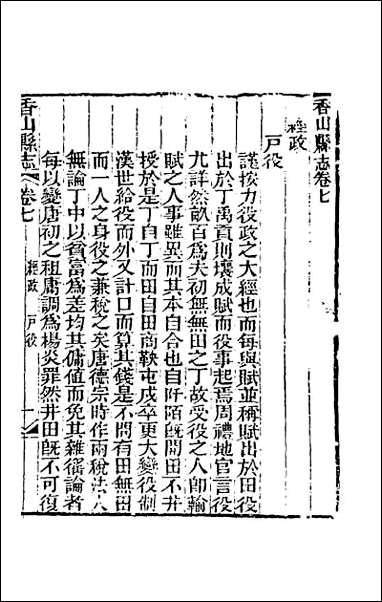 香山縣志卷七
經政
戸役
謹按力役政之大經也而每與賦並稱賦出於田役
出於丁禹貢則壤成賦而役事起焉周禮地官言役
尤詳然畝百爲夫初無無田之丁故受役之人卽輸
賦之人事雖異而其本自合也自阡陌旣開田不井
授於是丁自丁而田自田商鞅屯戍卒更大變役制
漢世給役而外又計口而算其錢是不問有田無田
而一人之身役之兼稅之矣唐德宗時作兩稅法人
無論丁中以貧富爲差均其傭値而免其雜徭論者
每以變唐初之租庸調爲楊炎罪然井田旣不可復
香山縣志
卷七
經政 戸役
一